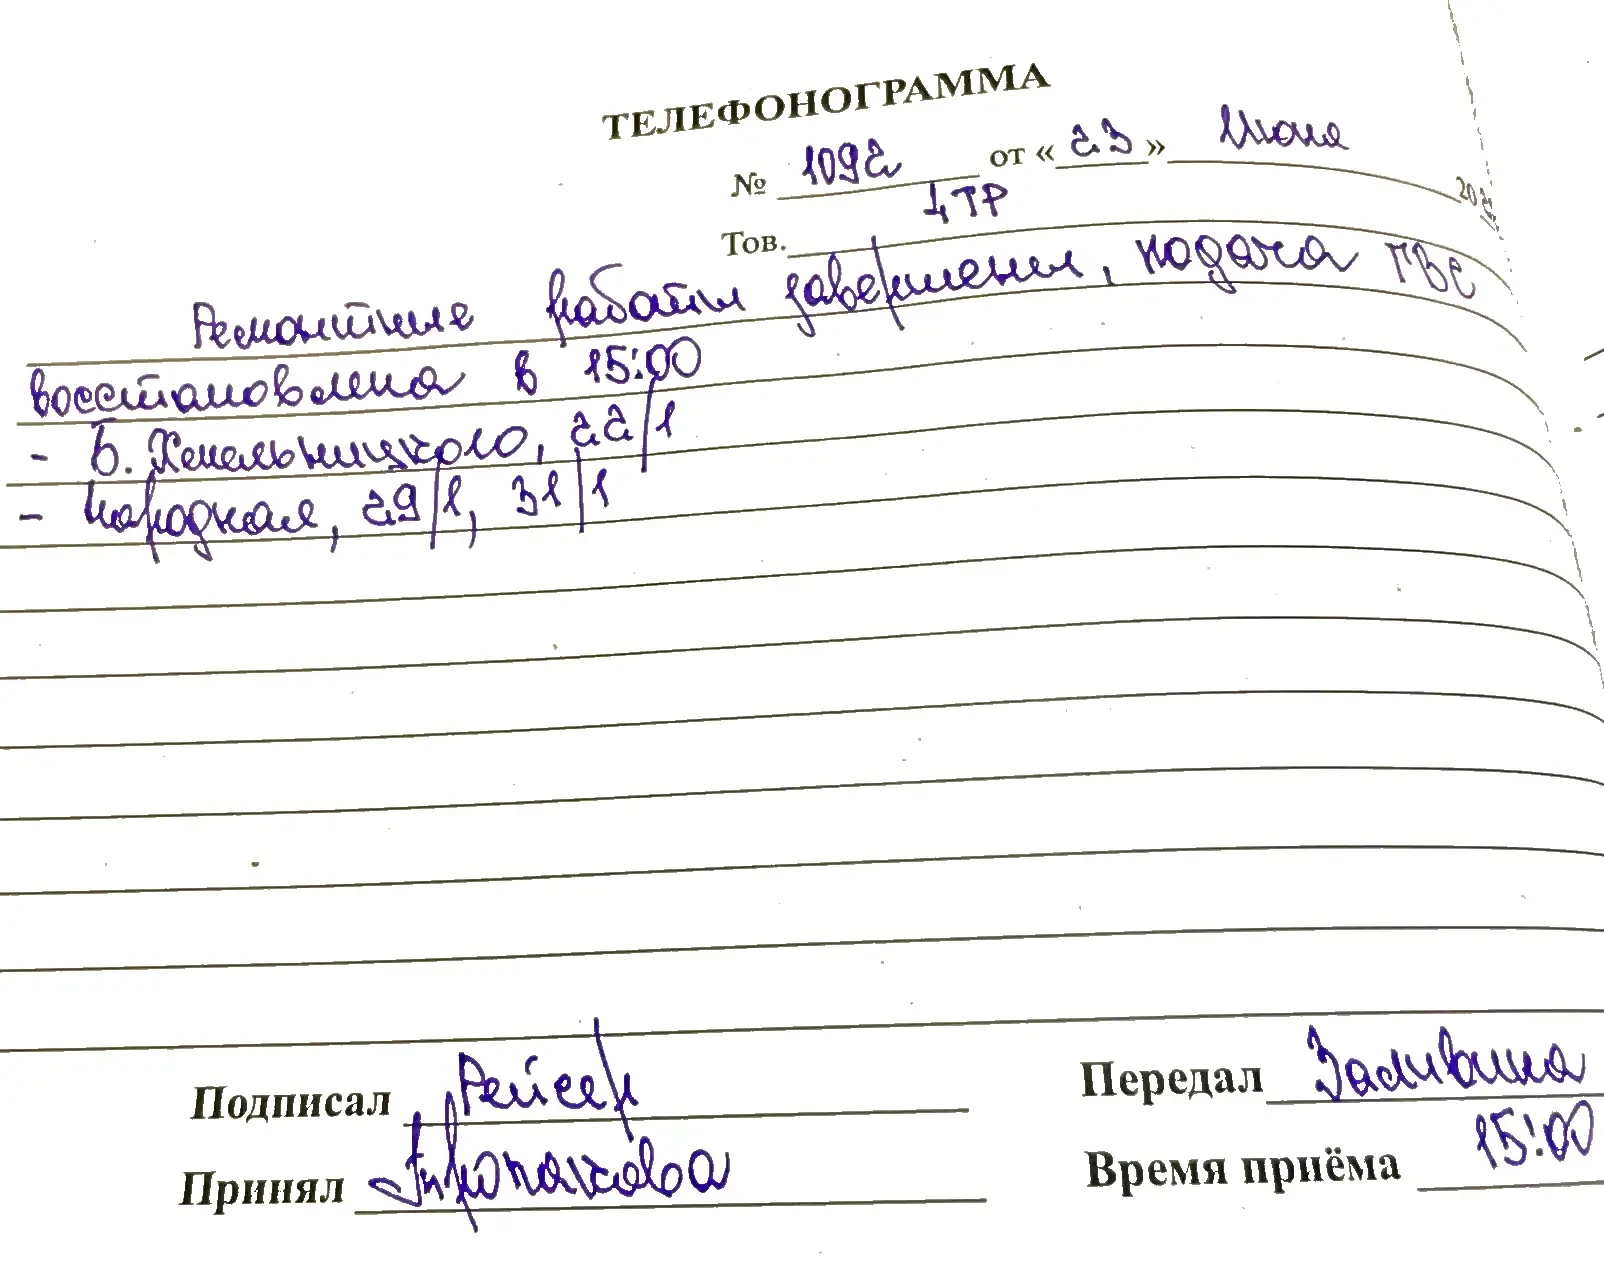 ТЕЛЕФОНОГРАММА
№ 1092 от «23» Июня
Тов. 4ТР
Ремонтные работы завершены, подача ГВС
восстановлена в 15:00
- Б. Хмельницкого, 22/1
- Народная, 29/1, 31/1
Подписал Рейсер Передал Заливина
Принял Время приёма 15:00